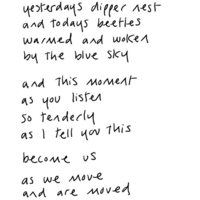 yesterdays dipper nest
and todays beetles
warmed and woken
by the blue sky
and this moment
as you listen
so tenderly
as I tell you this
become us
as we move
and are moved